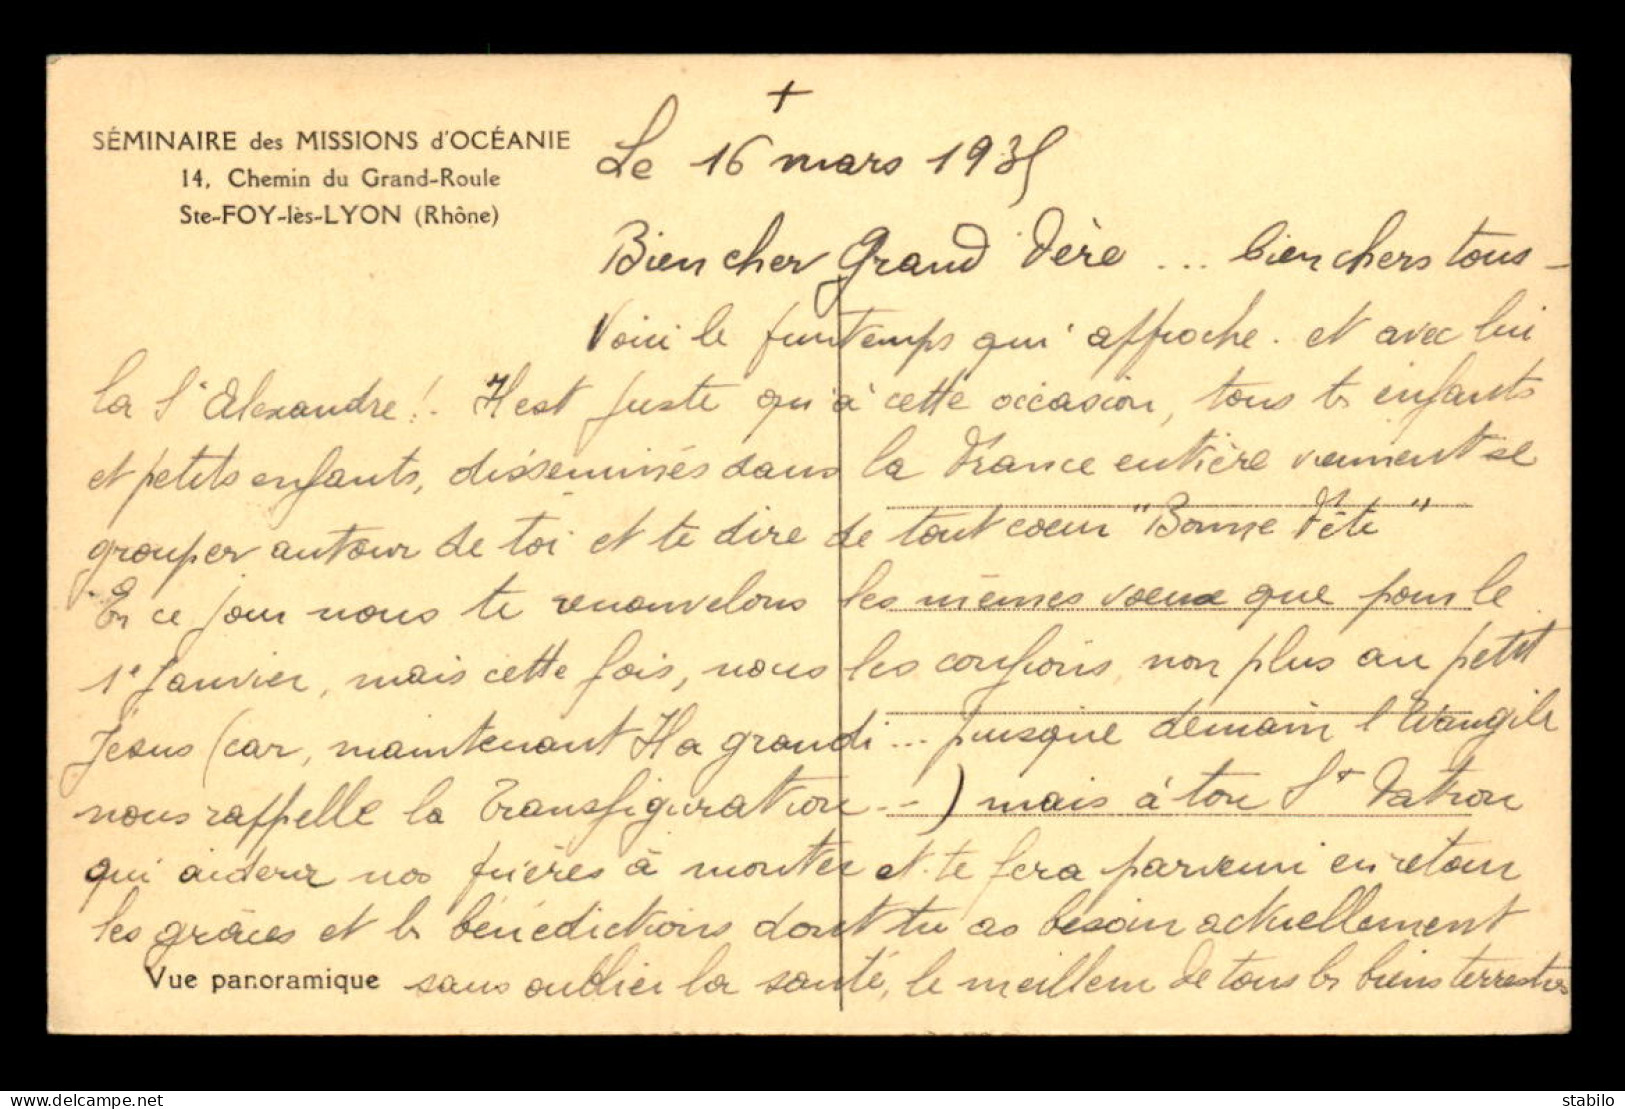 SÉMINAIRE des MISSIONS d'OCÉANIE
14, Chemin du Grand-Roule
Ste-FOY-lès-LYON (Rhône)
+
Le 16 mars 1935
Bien cher Grand Père ... bien chers tous -
Voici le printemps qui approche. et avec lui
la St Alexandre! - Il est juste qu'à cette occasion, tous les enfants
et petits enfants, disséminés dans la France entière viennent se
grouper autour de toi et te dire de tout coeur "Bonne Fête"
En ce jour nous te renouvelons les mêmes voeux que pour le
1er Janvier, mais cette fois, nous les confions, non plus au petit
Jésus (car, maintenant Il a grandi ... puisque demain l'Evangile
nous rappelle la Transfiguration --) mais à ton St Patron
qui aidera nos prières à monter et te fera parvenir en retour
les grâces et les bénédictions dont tu as besoin actuellement
sans oublier la santé, le meilleur de tous les biens terrestres
Vue panoramique
delcampe.net
stabilo